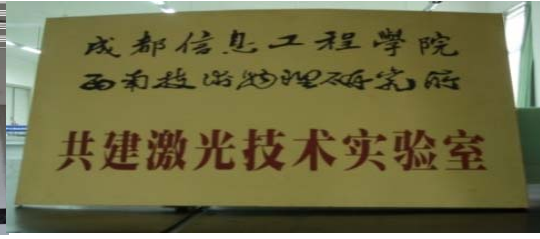 成都信息工程學院
西南技术物理研究所
共建激光技术实验室